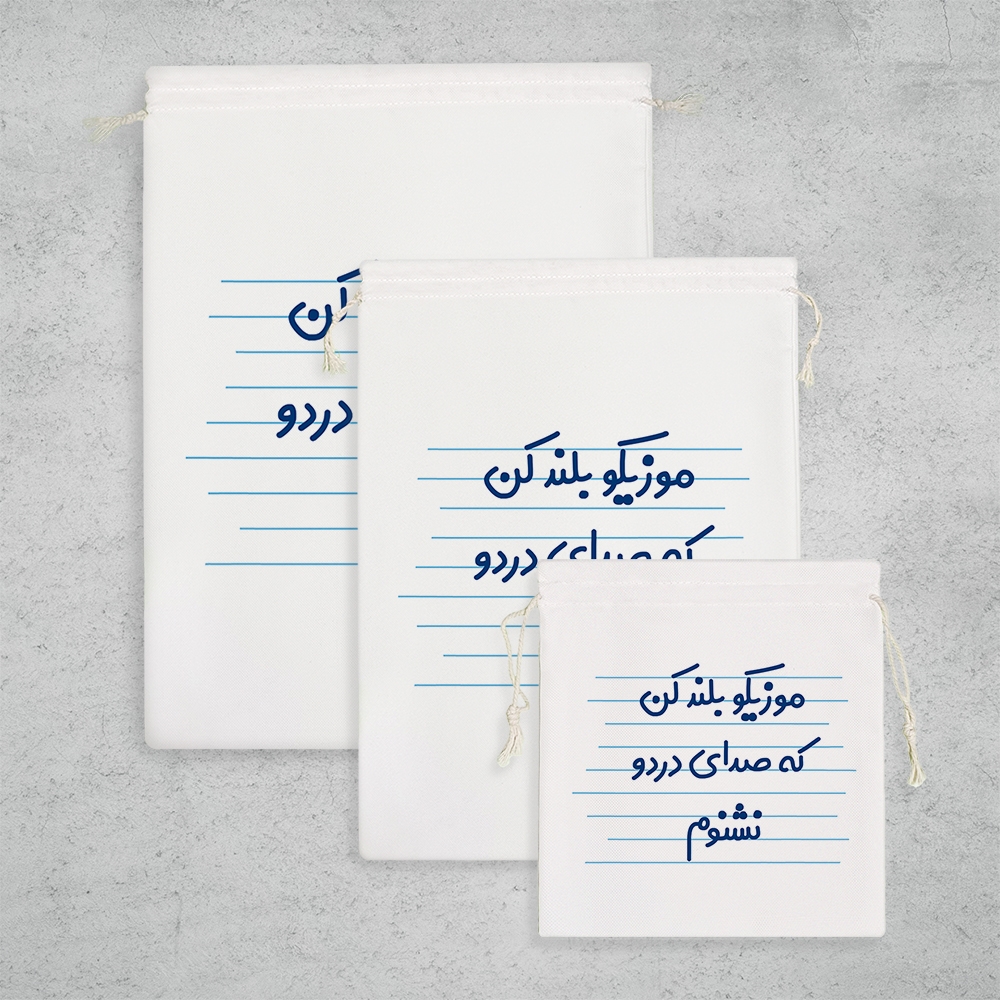 کن
دردو
موزیکو بلند کن
که صدای دردو
موزیکو بلند کن
که صدای دردو
نشنوم